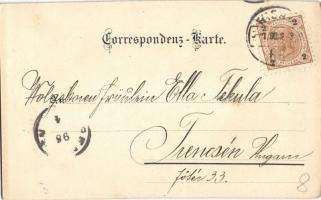 Correspondenz-Karte.
Wolgeboren Fräulein Ella Sekula
Trencsén Ungarn
főtér 33.
98
8